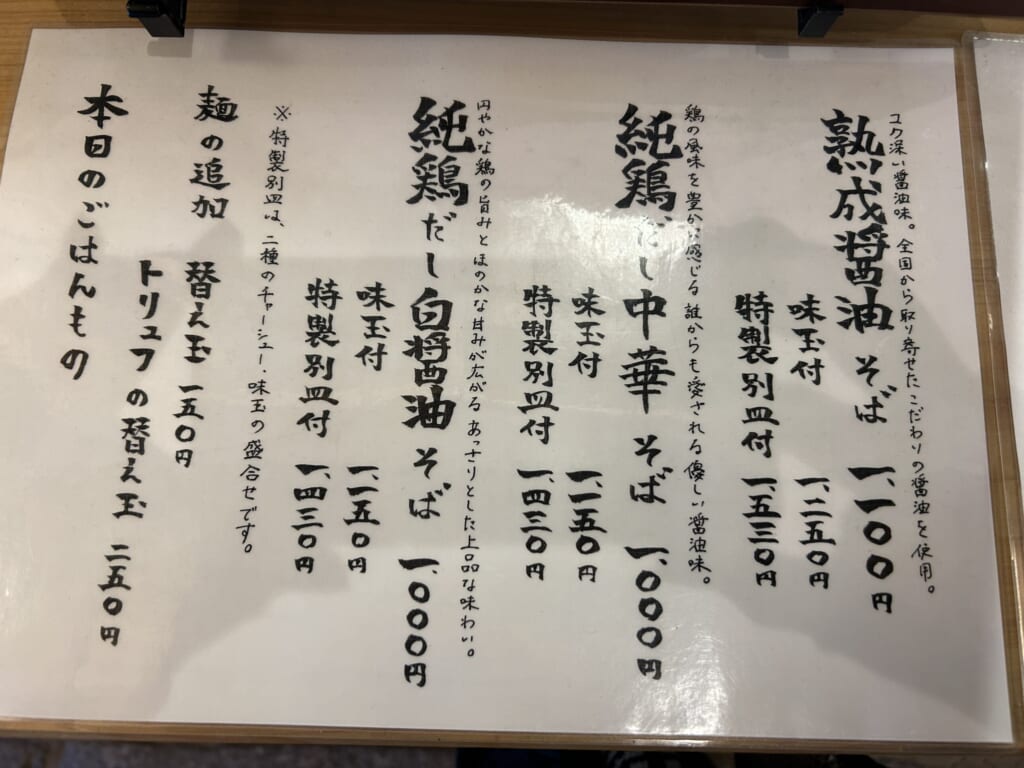 コク深い醤油味。全国から取り寄せたこだわりの醤油を使用。
熟成醤油そば 一、一〇〇円
味玉付 一、二五〇円
特製別皿付 一、五三〇円
鶏の風味を豊かに感じる 誰からも愛される優しい醤油味。
純鶏だし中華そば 一、〇〇〇円
味玉付 一、一五〇円
特製別皿付 一、四三〇円
円やかな鶏の旨みとほのかな甘みが広がる あっさりとした上品な味わい。
純鶏だし白醤油そば 一、〇〇〇円
味玉付 一、一五〇円
特製別皿付 一、四三〇円
※特製別皿は、二種のチャーシュー、味玉の盛合せです。
麺の追加
替え玉 一五〇円
トリュフの替え玉 二五〇円
本日のごはんもの